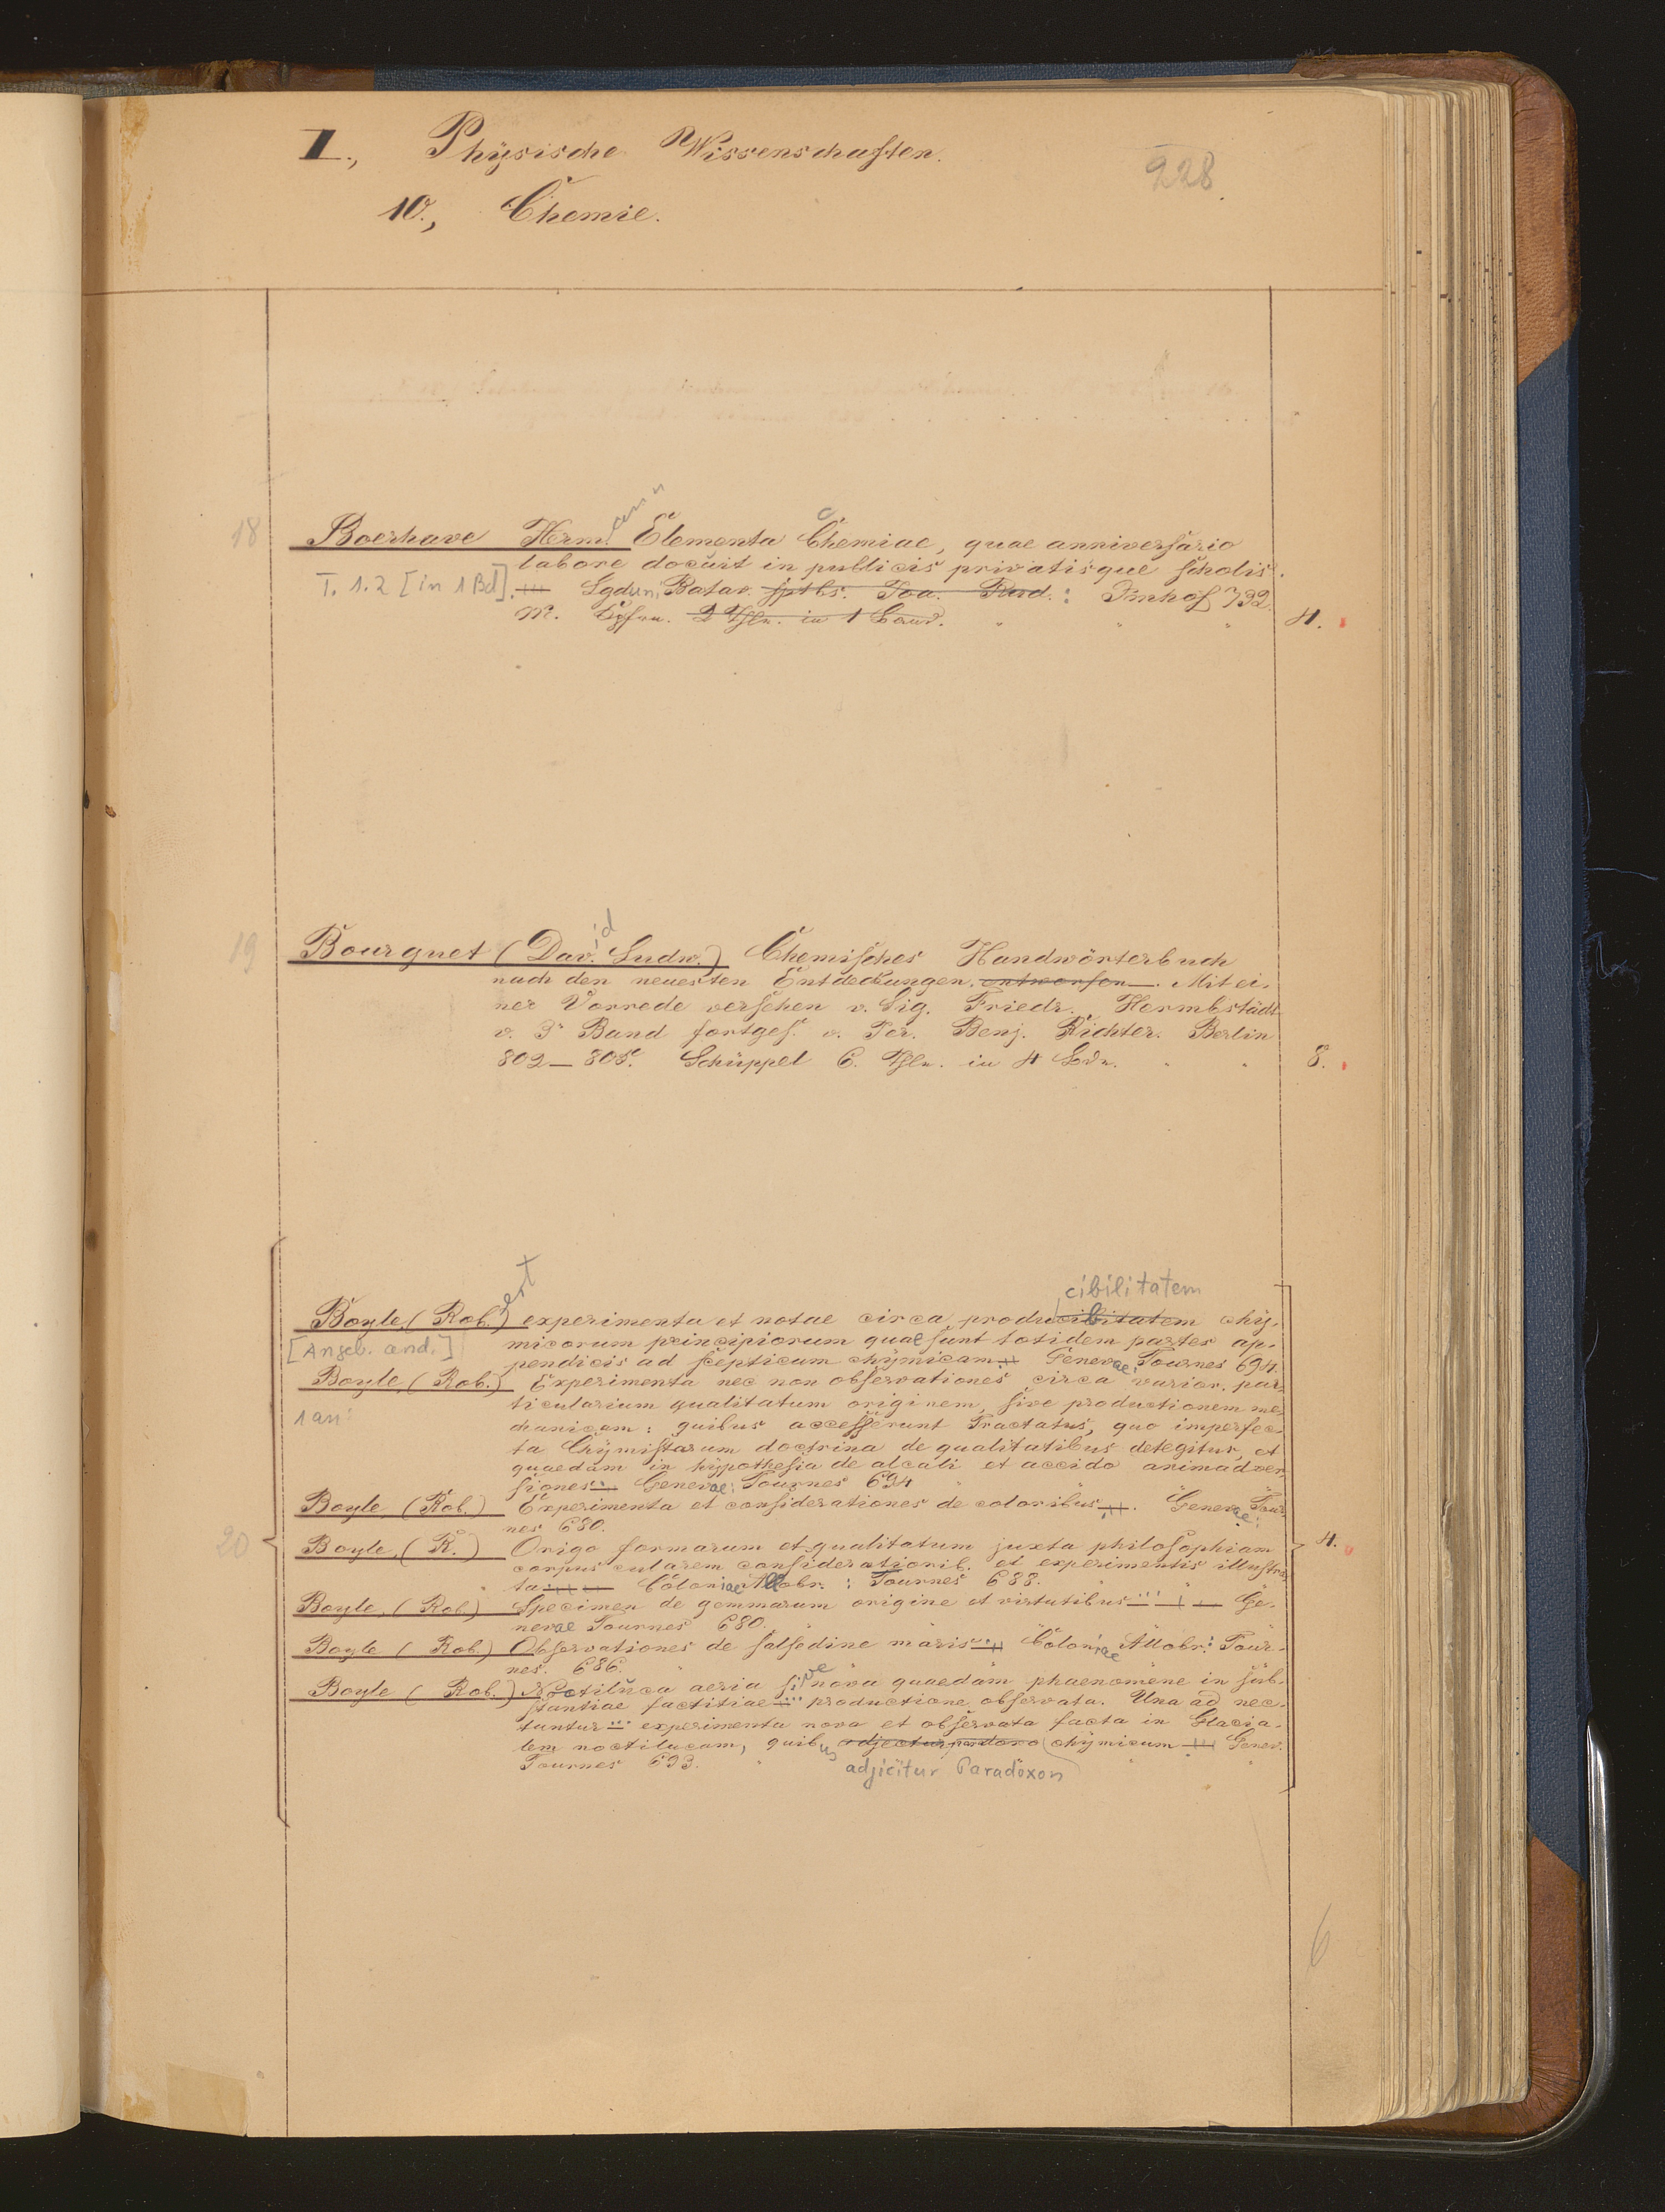 I., Physische Wissenschaften.
228
10., Chemie.
18
Boerhave Herm.ann Elementa Chemiae, quae anniversario
labore docuit in publicis privatisque scholis.
T. 1.2 [in 1 Bd] Lgduni Batav. Joa. Rud.: Imhof 732.
M. 2 Thle. in 1 Band. 4.
19
Bourguet (David Ludw.) Chemisches Handwörterbuch
nach den neuesten Entdeckungen. entworfen. Mit ei-
ner Vorrede versehen v. Sig. Friedr. Hermbstädt
v. 3r Band fortges. v. Jer. Benj. Richter. Berlin
802–805. Schüppel 6. Thle. in 4 Bdn. 8.
cibilitatem
Boyle, (Rob.)ert experimenta et notae circa producibilitatem chy-
[Angeb. and.] micorum principiorum quae sunt totidem partes ap-
pendicis ad scepticum chymicam Genevae: Tournes 694.
Boyle, (Rob.) Experimenta nec non observationes circa varior. par-
ticularium qualitatum originem, sive productionem me-
1 an:
chanicam: quibus accesserunt Tractatus, quo imperfec-
ta Chymistarum doctrina de qualitatibus detegitur, et
quaedam in hypothesia de alcali et accido animadver-
siones Genevae: Tournes 694
Boyle, (Rob.) Experimenta et considerationes de coloribus. Genevae: Tour-
nes 680.
20
Boyle, (R.) Origo formarum et qualitatum juxta philosophiam
corpuscularem considerationib. et experimentis illustra-
ta Coloniae Allobr.: Tournes 688.
4.
Boyle, (Rob) Specimen de gemmarum origine et virtutibus Ge-
nevae Tournes 680.
Boyle (Rob.) Observationes de salsedine maris Coloniae Allobr: Tour-
nes. 686.
Boyle (Rob.) Noctiluca aeria sive nova quaedam phaenomene in sub-
stantiae factitiae productione observata. Una ad nec-
tuntur experimenta nova et observata facta in Glacia-
lem noctilucam, quibus chymicum Genev.
Tournes 693. adjicitur Paradoxon
6